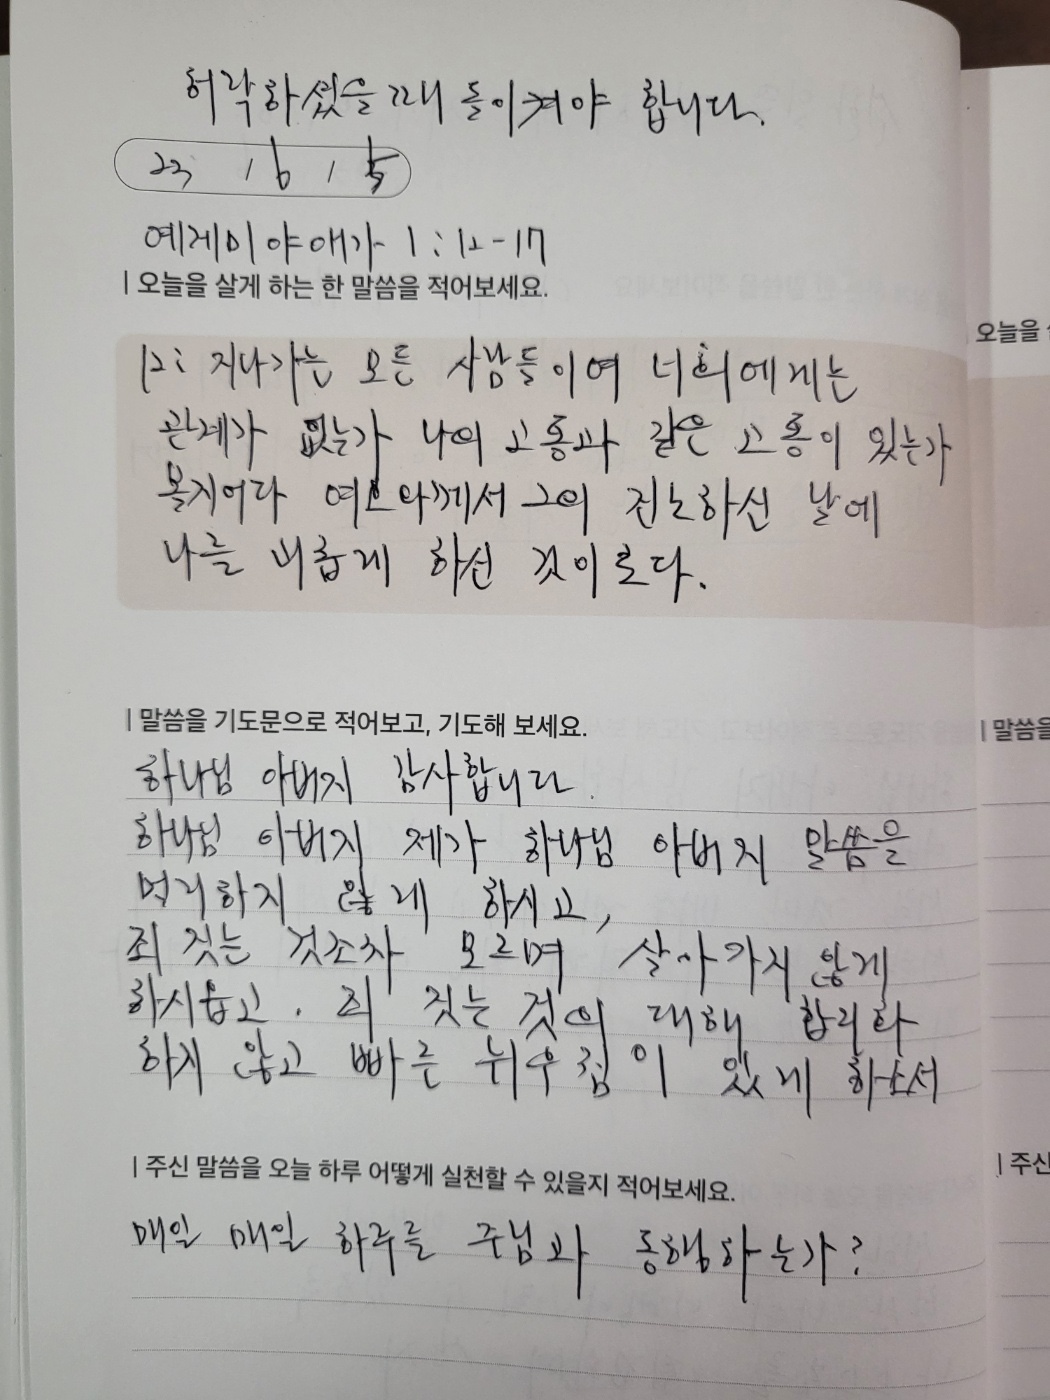 허락하셨을 때 돌이켜야 합니다.
23 / 6 / 5
예레미야애가 1:12-17
| 오늘을 살게 하는 한 말씀을 적어보세요.
12: 지나가는 모든 사람들이여 너희에게는
관계가 없는가 나의 고통과 같은 고통이 있는가
볼지어다 여호와께서 그의 진노하신 날에
나를 괴롭게 하신 것이로다.
| 말씀을 기도문으로 적어보고, 기도해 보세요.
하나님 아버지 감사합니다.
하나님 아버지 제가 하나님 아버지 말씀을
멀리하지 않게 하시고,
죄 짓는 것조차 모르며 살아가지 않게
하시옵고. 죄 짓는 것의 대해 합리화
하지 않고 빠른 뉘우침이 있게 하소서
| 주신 말씀을 오늘 하루 어떻게 실천할 수 있을지 적어보세요.
매일 매일 하루를 주님과 동행하는가?
오늘을
| 말씀을
| 주신